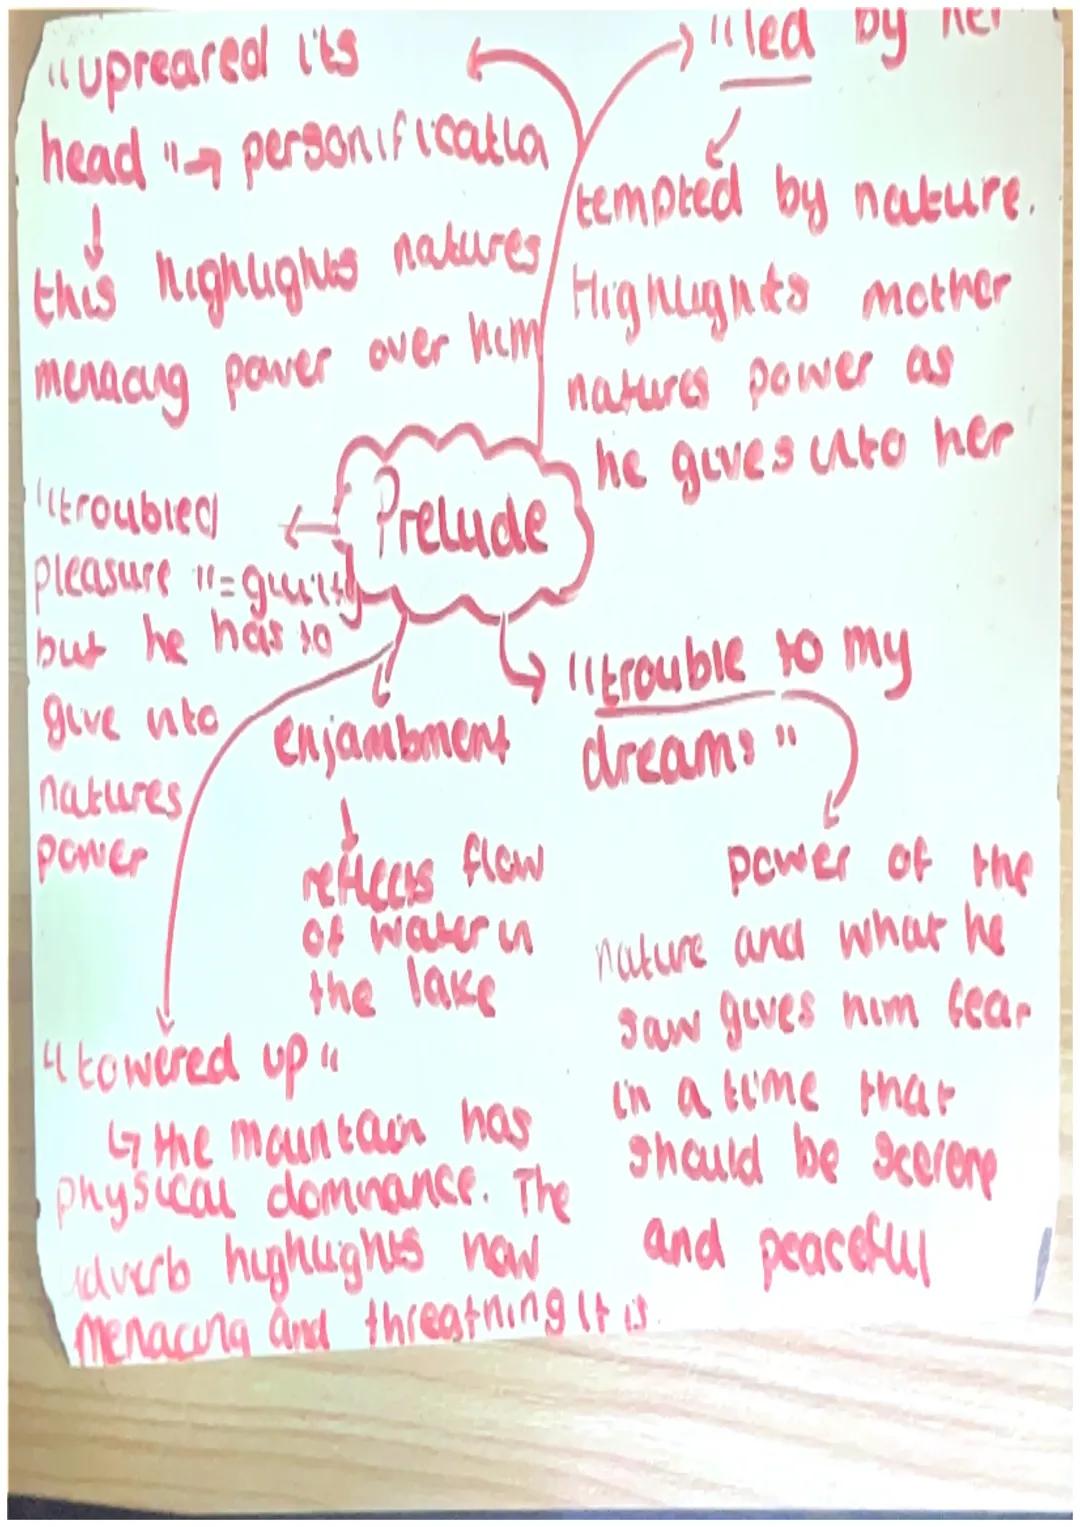 "upreared its
head" → personificatio
this highlights natures
menacing power over him
"led by her
tempted by nature.
Highlights mother
natures power as
he gives into her
Prelude
"troubled
pleasure" = guilty
but he has to
give into
natures
power
enjambment
reflects flow
of water in
the lake
"trouble to my
dreams"
power of the
nature and what he
saw gives him fear
in a time that
should be scerene
and peaceful
"towered up"
↳ the mountain has
physical dominance. The
adverb highlights how
menacing and threatning it is.